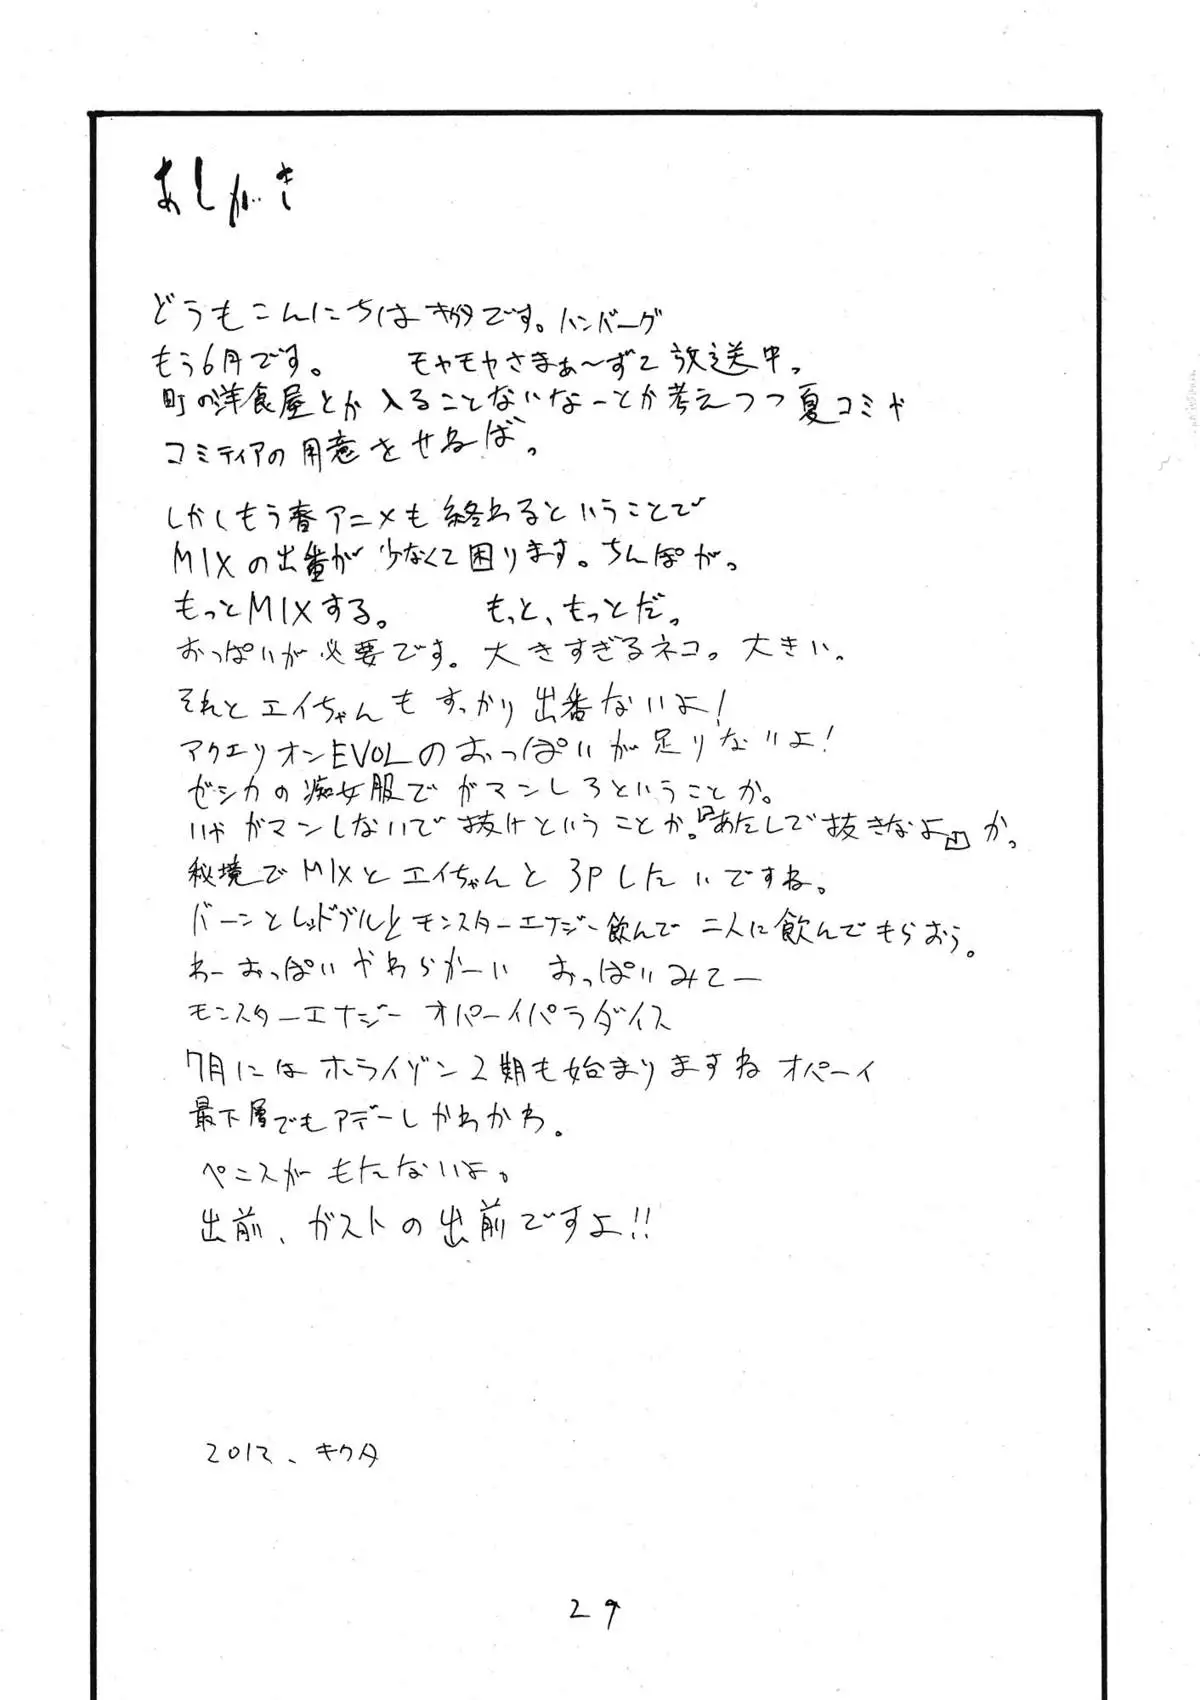 あしがき
どうもこんにちはキクタです。ハンバーグ
もう6月です。 モヤモヤさまぁ～ずで放送中。
町の洋食屋とか入ることないなーとか考えつつ夏コミや
コミティアの用意をせねば。
しかしもう春アニメも終わるということで
MIXの出番が少なくて困ります。ちんぽが。
もっとMIXする。 もっと、もっとだ。
おっぱいが必要です。大きすぎるネコ。大きい。
それとエイちゃんもすっかり出番ないよ！
アクエリオンEVOLのおっぱいが足りないよ！
ゼシカの痴女服でガマンしろということか。
いやガマンしないで抜けということか。『あたしで抜きなよ』か。
秘境でMIXとエイちゃんと3Pしたいですね。
バーンとレッドブルとモンスターエナジー飲んで二人に飲んでもらおう。
わーおっぱいやわらかーい おっぱいみてー
モンスターエナジー オパーイパラダイス
7月にはホライゾン2期も始まりますねオパーイ
最下層でもアデーレかわかわ。
ペニスがもたないよ。
出前、ガストの出前ですよ!!
2012、キクタ
29